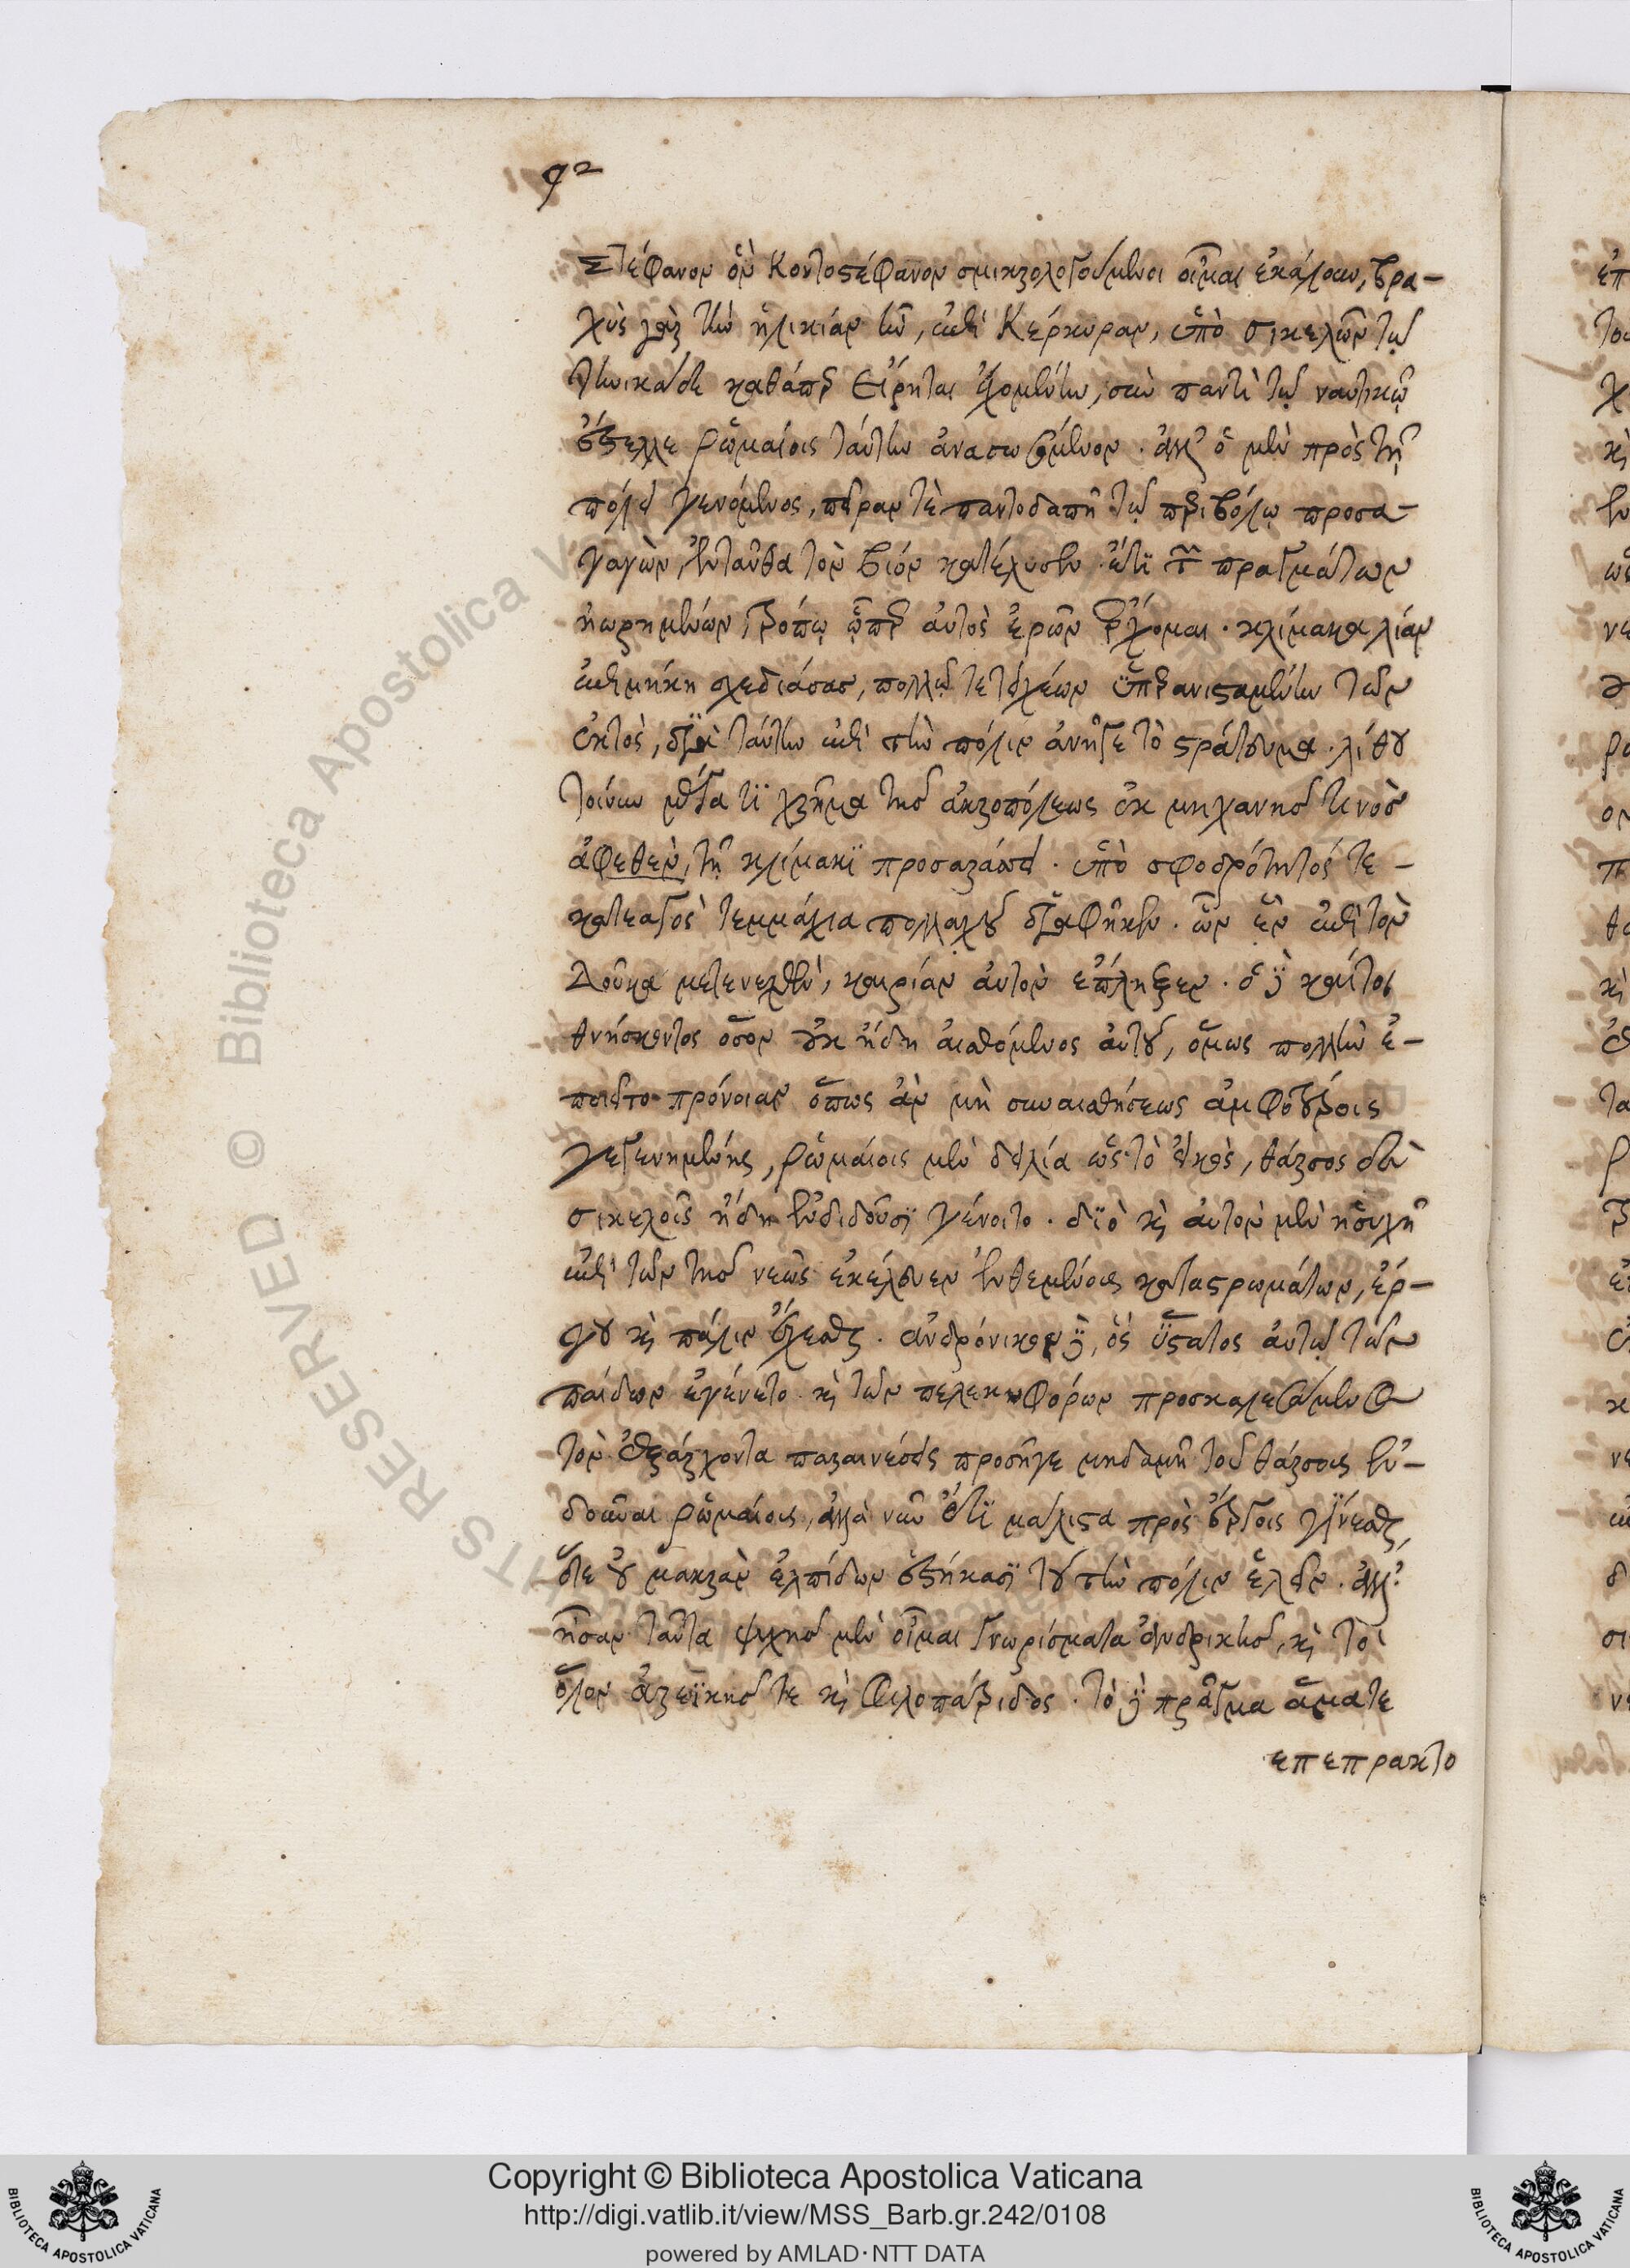 92
Στέφανον ὃν Κοντοστέφανον σμικρολογούμενοι οἶμαι ἐκάλουν, βρα-
χὺς γὰρ τὴν ἡλικίαν ἦν, ἐπὶ Κέρκυραν, ὑπὸ σικελῶν τῷ
τηνικάδε καθάπερ εἴρηται ἐχομένην, σὺν παντὶ τῷ ναυτικῷ
ἔστελλε ῥωμαίοις ταύτην ἀνασωσόμενον. ἀλλ' ὁ μὲν πρὸς τῇ
πόλει γενόμενος, πεῖραν τὲ παντοδαπῆ τῷ περιβόλῳ προσα-
γαγὼν, ἐνταῦθα τὸν βίον κατέλυσεν ἔτι τῶν πραγμάτων
ἠωρημένων, τρόπῳ ᾧπερ αὐτὸς ἐρῶν ἔρχομαι. κλίμακα λίαν
ἐπιμήκη σχεδιάσας, πολλῷ τε τειχέων ὑπερανισταμένην τῶν
ἐκτὸς, διὰ ταύτην ἐπὶ τὴν πόλιν ἀνῆγε τὸ στράτευμα. λίθου
τοίνυν μέγα τι χρῆμα τῆς ἀκροπόλεως ἐκ μηχανῆς τινὸς
ἀφεθὲν, τῇ κλίμακι προσαράσσει. ὑπὸ σφοδρότητός τε-
κατεαγὸς τεμμάχια πολλαχοῦ διαφῆκεν. ὧν ἓν ἐπὶ τὸν
Δοῦκα μετενεχθὲν, καιρίαν αὐτὸν ἔπληξεν. ὁ δὲ καίτοι
θνήσκοντος ὅσον οὐκ ἤδη αἰσθόμενος αὐτοῦ, ὅμως πολλὴν ἐ-
ποιεῖτο πρόνοιαν ὅπως ἂν μὴ συναισθήσεως ἀμφοτέροις
γεγενημένης, ῥωμαίοις μὲν δειλία ὡς τὸ εἰκὸς, θάρσος δὲ
σικελοῖς ἤδη ἐνδιδοῦσι γένοιτο. διὸ καὶ αὐτὸν μὲν ἡσυχῆ
ἐπὶ τῶν τῆς νεὼς ἐκέλευεν ἐνθεμένοις καταστρωμάτων, ἔρ-
γου καὶ πάλιν ἔχεσθαι. ἀνδρόνικον δὲ, ὃς ὕστατος αὐτῷ τῶν
παίδων ἐγένετο καὶ τῶν πελεκηφόρων προσκαλεσάμενος
τὸν ἐξάρχοντα παραινέσεις προσῆγε μηδαμῆ τοῦ θάρσους ἐν-
δοῦναι ῥωμαίοις, ἀλλὰ νῦν ἔτι μάλιστα πρὸς ἔργοις γίνεσθαι,
ὅτε οὐ μακρὰν ἐλπίδων ἑστήκασι τοῦ τὴν πόλιν ἑλεῖν. ἀλλ'
ἦσαν ταῦτα ψυχῆς μὲν οἶμαι γνωρίσματα ἀνδρικῆς, καὶ τὸ
ὅλον ἀρεϊκῆς τε καὶ φιλοπάτριδος. τὸ δὲ πρᾶγμα ἅμα τε
επεπρακτο
Copyright © Biblioteca Apostolica Vaticana
http://digi.vatlib.it/view/MSS_Barb.gr.242/0108
powered by AMLAD·NTT DATA